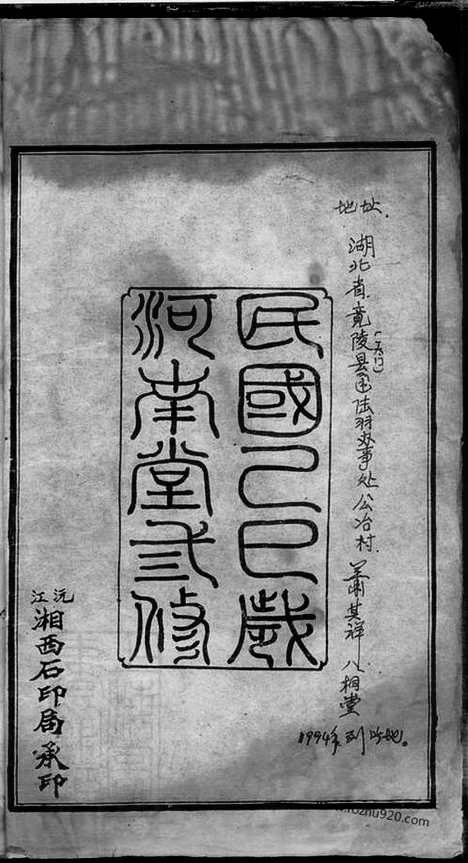 地址.
湖北省竟陵县(天门)陆羽办事处公冶村. 萧其祥 八相堂
1994年到此地。
民國己巳歲
河南堂弎修
沅江
湘西石印局承印
zhu920.com